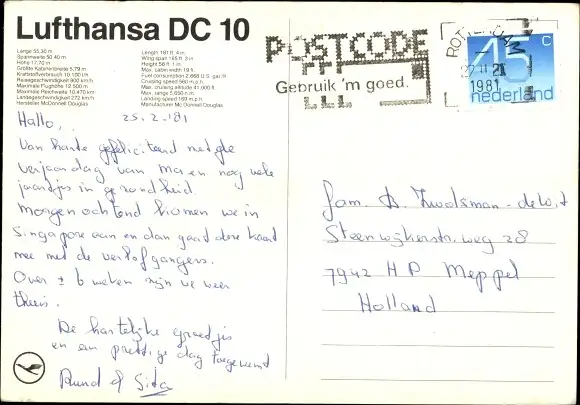 Lufthansa DC 10
Länge 55,30 m
Spannweite 50,40 m
Höhe 17,70 m
Größte Kabinenbreite 5,79 m
Kraftstoffverbrauch 10.100 l/h
Reisegeschwindigkeit 900 km/h
Maximale Flughöhe 12.500 m
Maximale Reichweite 10.470 km
Landegeschwindigkeit 272 km/h
Hersteller McDonnell Douglas
Length 181 ft. 4 in.
Wing span 165 ft.
Height 58 ft. 1 in.
Max. cabin width 19 ft.
Fuel consumption 2,668 U.S. gal./h
Cruising speed 560 m.p.h.
Max. cruising altitude 41,000 ft.
Max. range 5,650 n.m.
Landing speed 169 m.p.h.
Manufacturer Mc Donnell Douglas
POSTCODE
Gebruik 'm goed.
ROTTERDAM
1981
45 c
nederland
25.2.'81
Hallo,
Van harte gefeliciteerd met de
verjaardag van ma en nog vele
jaartjes in gezondheid.
Morgenochtend komen we in
Singapore aan en dan gaat deze kaart
mee met de verlofgangers.
Over ± 6 weken zijn we weer
thuis.
De hartelijke groetjes
en een prettige dag toegewenst
Ruud & Sita
fam. A. Zwolsman-de Wit
Steenwijkerstr.weg 28
7942 HP Meppel
Holland